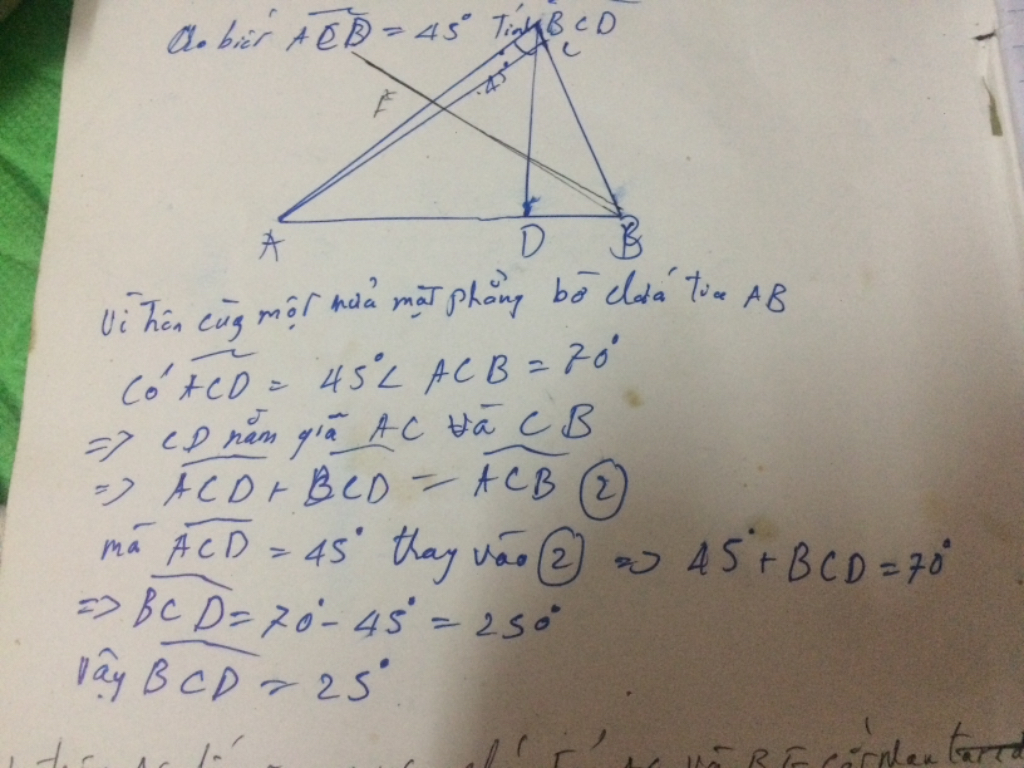 Cho biết ACD = 45° Tính BCD
C
45°
E
A
D
B
Vì trên cùng một nửa mặt phẳng bờ chứa tia AB
Có ACD = 45° < ACB = 70°
=> CD nằm giữa AC và CB
=> ACD + BCD = ACB (2)
mà ACD = 45° thay vào (2) => 45° + BCD = 70°
=> BCD = 70° - 45° = 250°
Vậy BCD = 25°